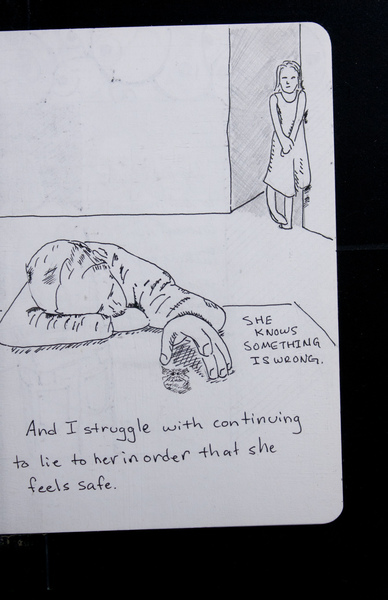 SHE
KNOWS
SOMETHING
IS WRONG.
And I struggle with continuing
to lie to her in order that she
feels safe.